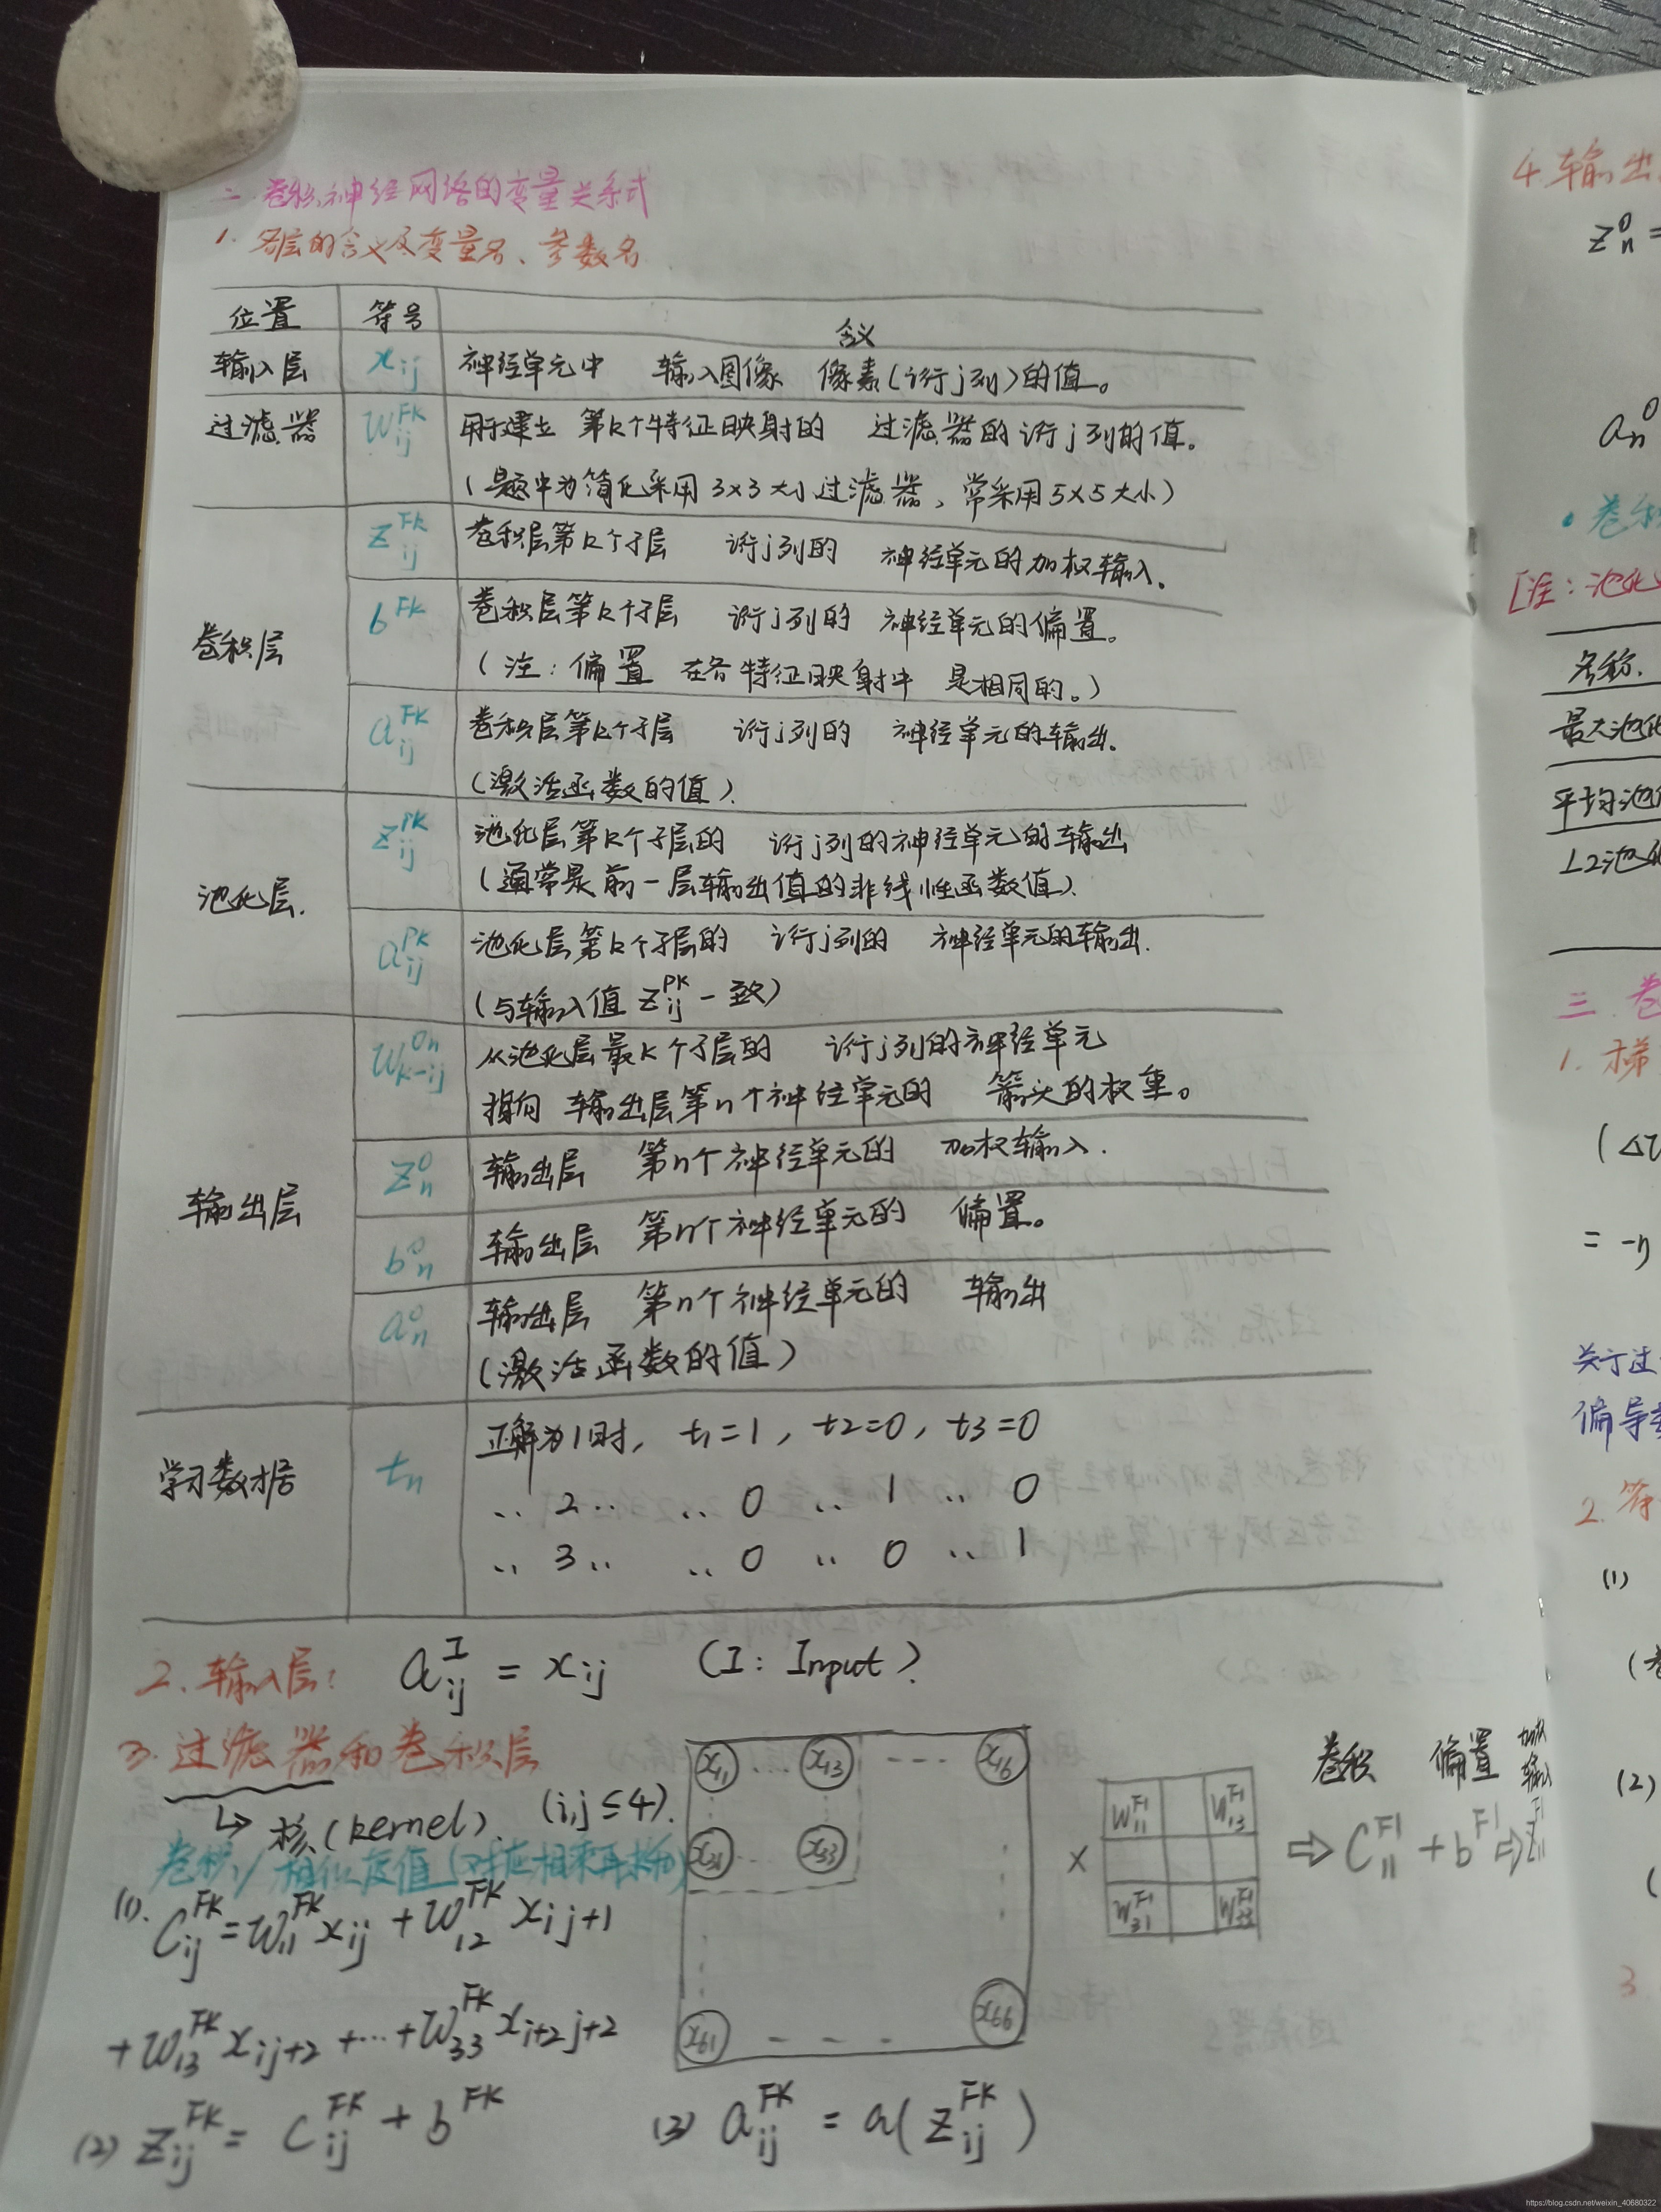 二. 卷积神经网络的变量关系式
1. 各层的含义及变量名、参数名
位置 符号 含义
输入层 x_ij 神经单元中 输入图像 像素(i行j列)的值。
过滤器 w_ij^Fk 用于建立 第k个特征映射的 过滤器的i行j列的值。
(题中为简化采用3×3大小过滤器, 常采用5×5大小)
卷积层 z_ij^Fk 卷积层第k个子层 i行j列的 神经单元的加权输入.
b^Fk 卷积层第k个子层 i行j列的 神经单元的偏置。
(注: 偏置 在各特征映射中 是相同的。)
a_ij^Fk 卷积层第k个子层 i行j列的 神经单元的输出.
(激活函数的值).
池化层. z_ij^Pk 池化层第k个子层的 i行j列的神经单元的输出
(通常是前一层输出值的非线性函数值).
a_ij^Pk 池化层第k个子层的 i行j列的 神经单元的输出.
(与输入值 z_ij^Pk 一致)
输出层 w_k-ij^On 从池化层第k个子层的 i行j列的神经单元
指向 输出层第n个神经单元的 箭头的权重。
z_n^O 输出层 第n个神经单元的 加权输入.
b_n^O 输出层 第n个神经单元的 偏置。
a_n^O 输出层 第n个神经单元的 输出
(激活函数的值)
学习数据 t_n 正解为1时, t1=1, t2=0, t3=0
.. 2 .. .. 0 .. 1 .. 0
.. 3 .. .. 0 .. 0 .. 1
2. 输入层: a_ij^I = x_ij (I: Input)
3. 过滤器和卷积层
↳ 核(kernel). (i,j ≤ 4).
卷积/相似度值(对应相乘再求和)
(1). C_ij^Fk = w_11^Fk x_ij + w_12^Fk x_ij+1
+ w_13^Fk x_ij+2 + ... + w_33^Fk x_i+2j+2
(2) z_ij^Fk = C_ij^Fk + b^Fk (3) a_ij^Fk = a(z_ij^Fk)
x11 ... x13 --- x16
x31 ... x33
x61 --- x66
×
w_11^F1 w_13^F1
w_31^F1 w_33^F1
卷积 偏置 加权输入
⇒ C_11^F1 + b^F1 ⇒ z_11^F1
4. 输出
z_n^O =
a_n^O
• 卷积
[注: 池化
名称.
最大池化
平均池化
L2池化
三. 卷
1. 梯
(Δ
= -η
关于过
偏导
2. 符
(1)
(2)
3
https://blog.csdn.net/weixin_40680322